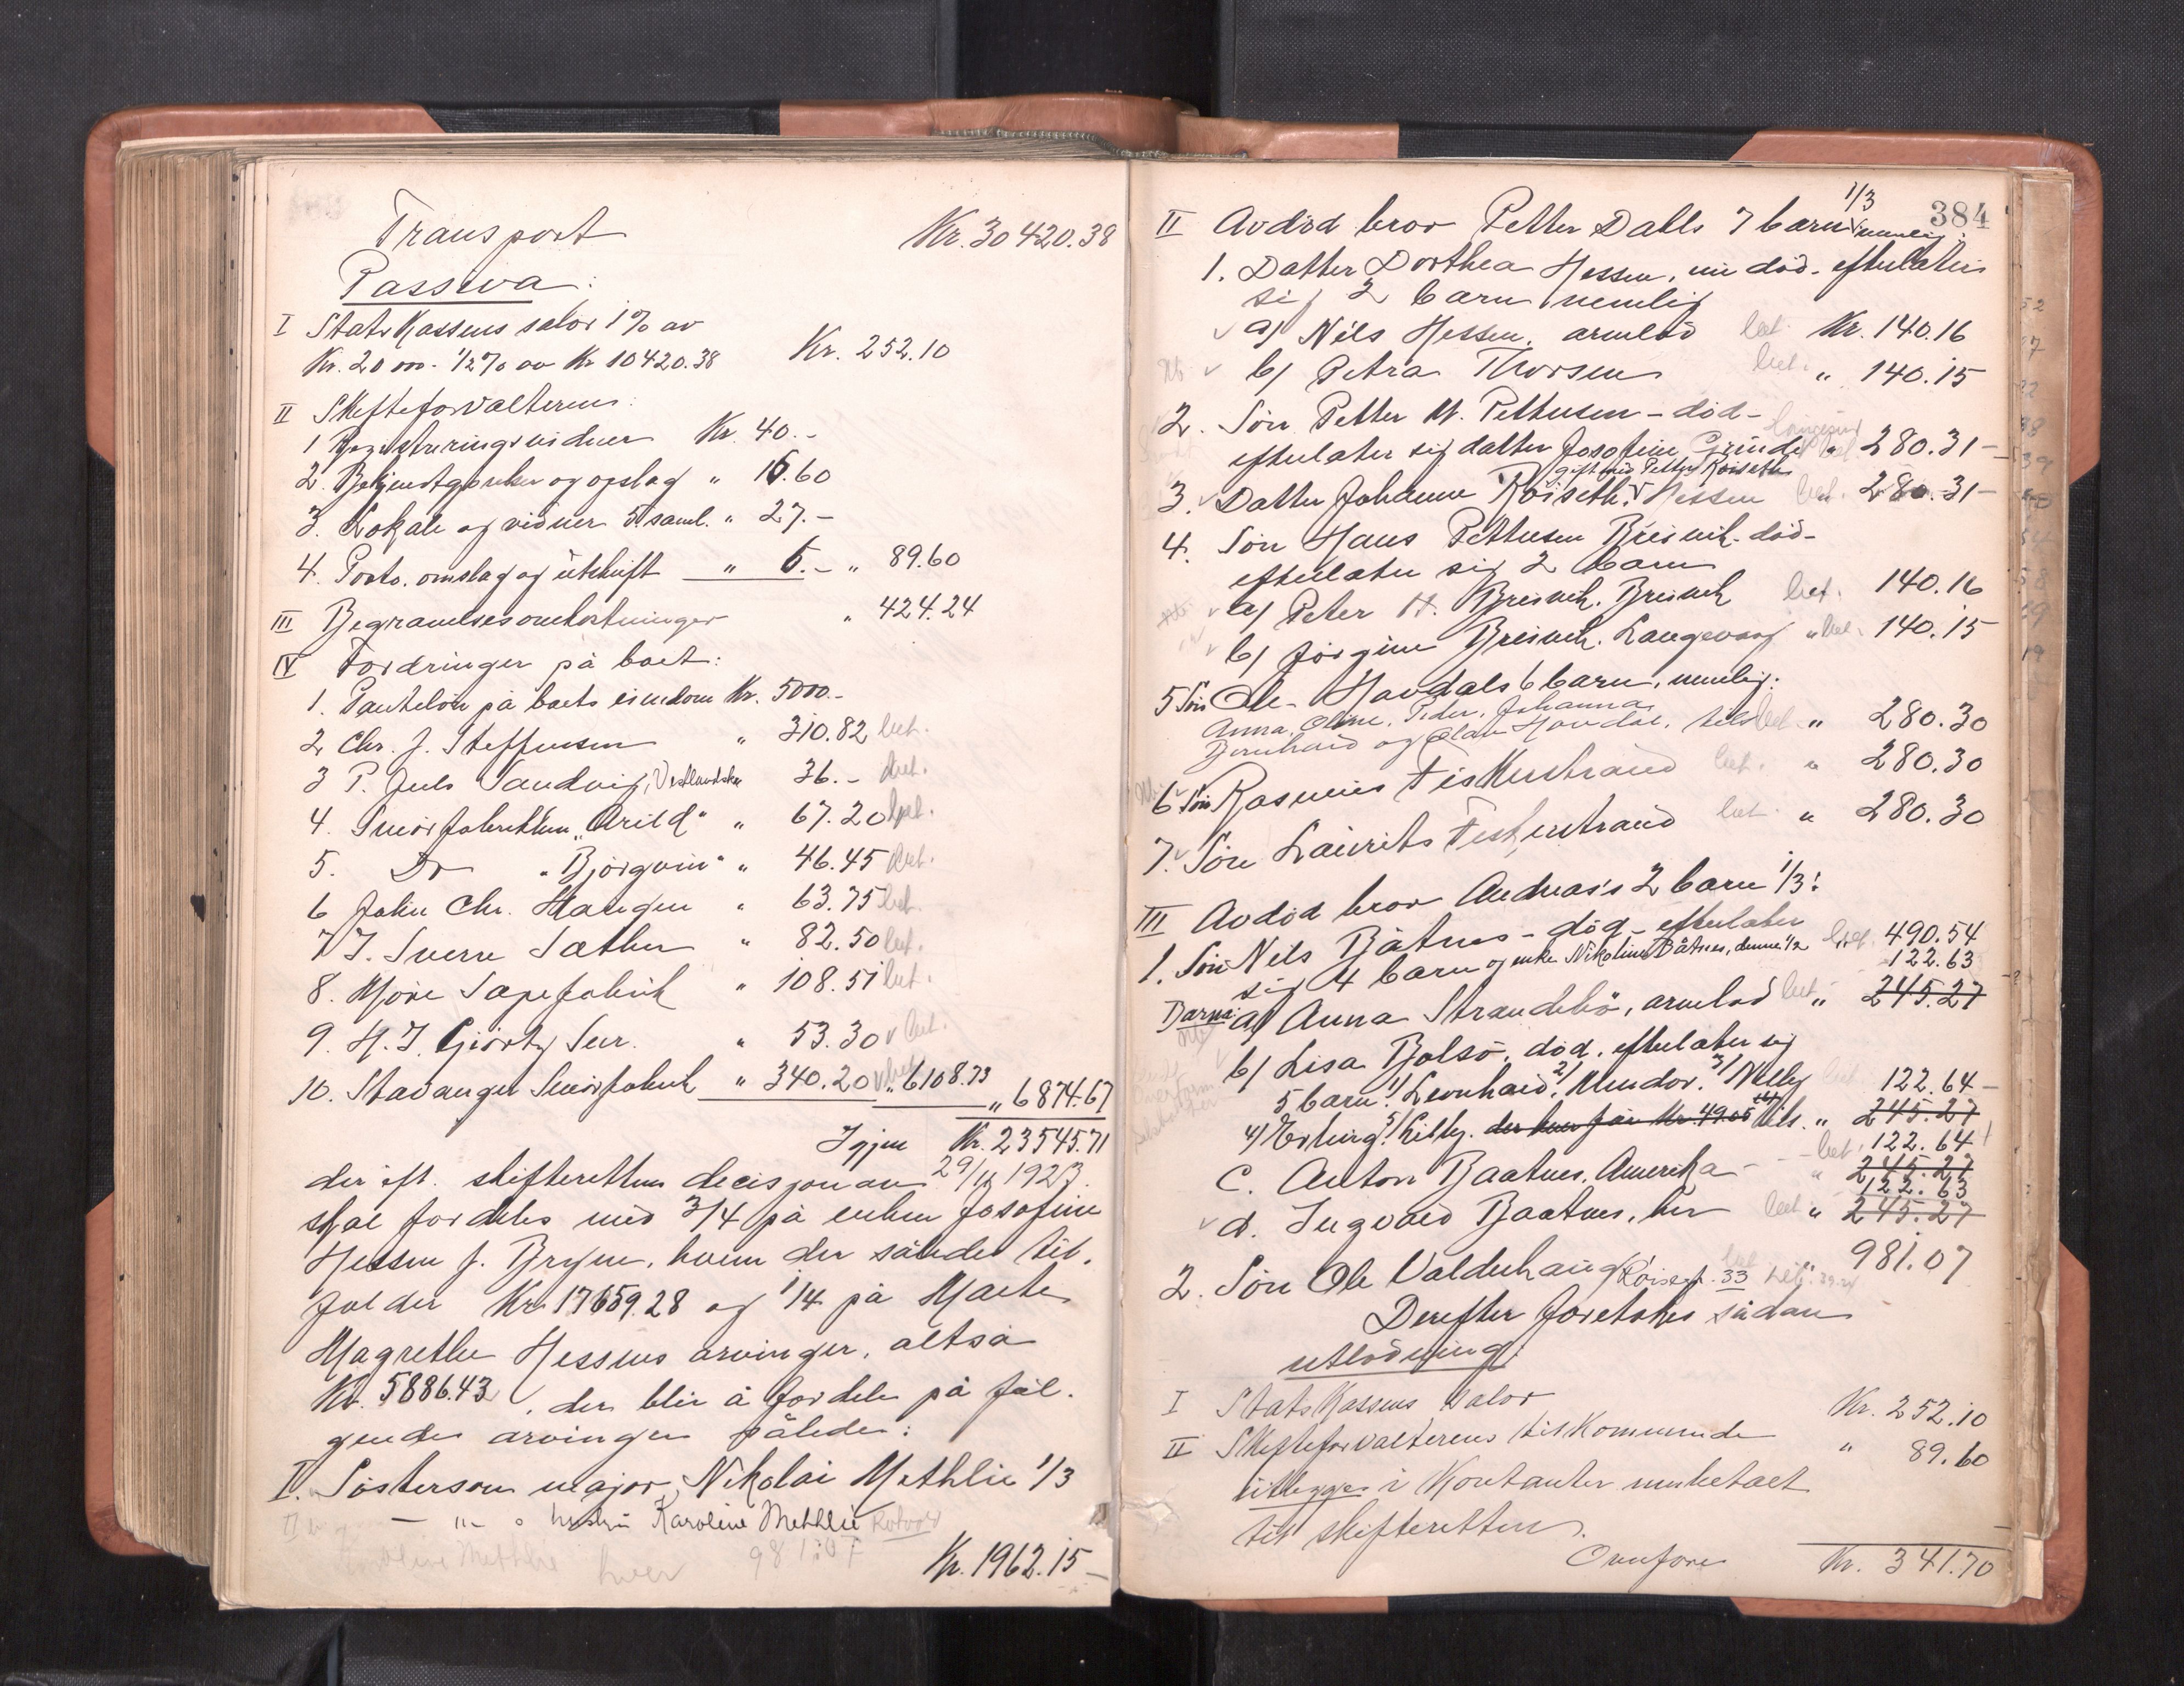 Transport Kr. 30420.38
Passiva:
I Statskassens salør 1% av
Kr. 20 000.- 1/2% av Kr 10420.38 Kr. 252.10
II Skifteforvalteren:
1 Registreringsvidner Kr. 40.-
2. Bekjendtgjørelser og opslag " 16.60
3. Lokale og vidner 5 saml. " 27.-
4. Porto. omslag og utskrift " 6.- " 89.60
III Begravelsesomkostninger " 424.24
IV Fordringer på boet:
1. Pantelån på boets eiendom Kr. 5000.-
2 Chr. J. Steffensen " 310.82 bet.
3 P. Juls Sandvig, Vestlandske 36.- bet.
4. Smørfabrikken "Arild" " 67.20 bet.
5. Do "Bjørgvin" " 46.45 bet.
6 John Chr. Haugen " 63.75 bet.
7 J. Svern Sæther " 82.50 bet.
8. Møre Sæpefabrik " 108.51 bet.
9. H. J. Gjørtz Sen. " 53.30 bet.
10. Stavanger Smørfabrik " 340.20 " 6108.73 " 6874.67
Igjen Kr. 23545.71
der eft. skifterettens decisjon av 29/11 1923
skal fordeles med 3/4 på enken Josefine
Hessen f. Bryne, hvem der således til.
falder Kr. 17659.28 og 1/4 på Marte
Magrethe Hessens arvinger, altså
Kr. 5886.43, der blir å fordele på føl.
gende arvinger således:
I. Søstersøn major Nikolai Methlie 1/3
- " - Karoline Methlie
Methlie hver 981.07 Kr. 1962.15
384
II Avdød bror Petter Dahls 7 barn 1/3 nemlig:
1. Datter Dorthea Hessen, nu død. efterlater
sig 2 barn nemlig
a) Nils Hessen, arvelod bet. Kr. 140.16
b) Petra Thorsen bet. " 140.15
2. Søn Petter M. Pettersen - død -
efterlater sig datter Josefine Grinde " 280.31-
gift med Petter Røiseth
3. Datter Johanne Røiseth. Hessen bet. " 280.31-
4. Søn Hans Pettersen Breivik. død-
efterlater sig 2 barn
a) Peter H. Breivik. Breivik bet. 140.16
b) Jørgine Breivik. Langevaag " bet. 140.15
5 Søn Ole Hovdals 6 barn, nemlig:
Anna, Oline, Peder, Johanna,
Bernhard og Olav Hovdal, tils. bet. " 280.30
6 Søn Rasmus Fiskerstrand bet. " 280.30
7. Søn Laurits Fiskerstrand bet. " 280.30
III Avdød bror Andreas's 2 barn 1/3:
1. Søn Nils Båtnes - død - efterlater
sig 4 barn og enke Nikoline Båtnes, denne 1/2 bet. 490.54
122.63
Barna: a) Anna Strandebø, arvelod bet. " 245.27
b) Lisa Bolsø, død, efterlater sig
5 barn: 1) Leonhard, 2) Mindor. 3) Nelly 122.64
4) Erling. 5) Lilly. der hver får Kr. 49.05 tils. " 245.27
bet. 122.64
C. Anton Baatnes, Amerika - - " 245.27
122.63
d. Ingvald Baatnes, her bet. " 245.27
2. Søn Ole Valderhaug Røisegt. 33 981.07
Derefter foretokes sådan
utlodning:
I Statskassens salør Kr. 252.10
II Skifteforvalterens til Kommunide " 89.60
utlegges i Kontanter umbetalt
til skifteretten.
Overføres Kr. 341.70